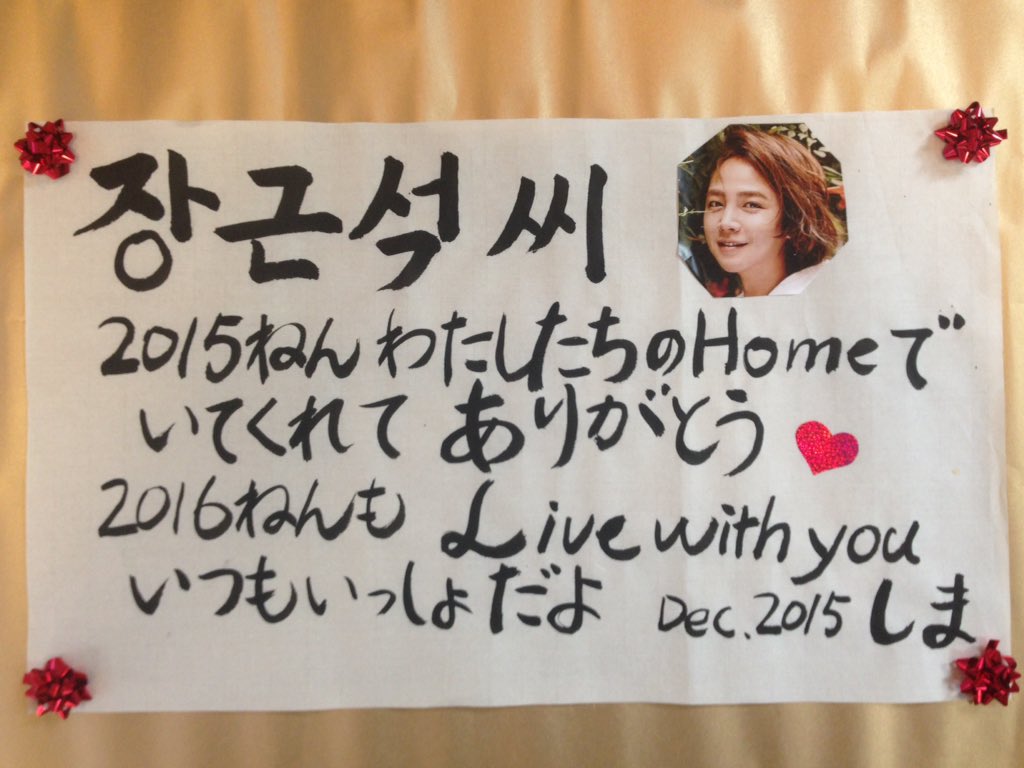 장근석 씨
2015ねん わたしたちのHomeで
いてくれて ありがとう
2016ねんも Live with you
いつもいっしょだよ Dec.2015 しま